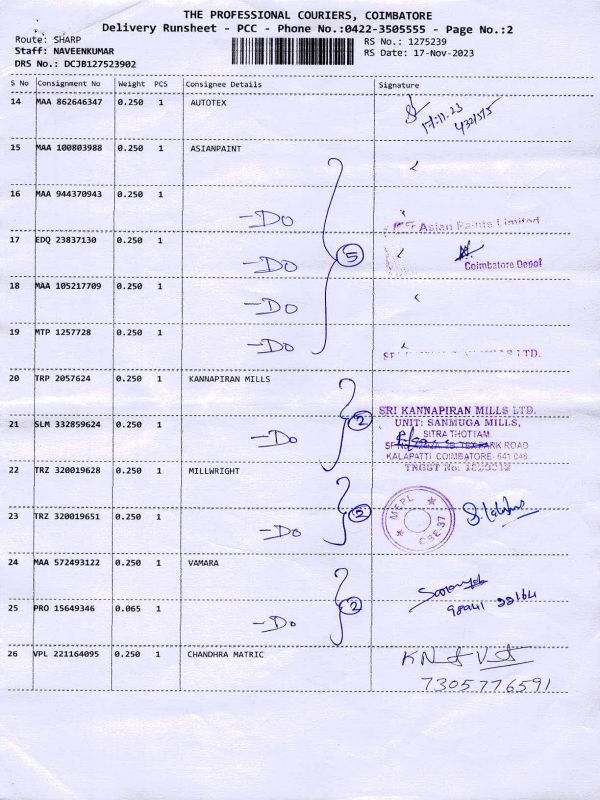 THE PROFESSIONAL COURIERS, COIMBATORE
Delivery Runsheet - PCC - Phone No.:0422-3505555 - Page No.:2
Route: SHARP
RS No.: 1275239
Staff: NAVEENKUMAR
RS Date: 17-Nov-2023
DRS No.: DCJB127523902
S No Consignment No Weight PCS Consignee Details Signature
14 MAA 862646347 0.250 1 AUTOTEX
17.11.23
15 MAA 100803988 0.250 1 ASIANPAINT
16 MAA 944370943 0.250 1
-Do
Asian Paints Limited
17 EDQ 23837130 0.250 1
-Do 5
Coimbatore Depot
18 MAA 105217709 0.250 1
-Do
19 MTP 1257728 0.250 1
-Do
LTD.
20 TRP 2057624 0.250 1 KANNAPIRAN MILLS
SRI KANNAPIRAN MILLS LTD.
21 SLM 332859624 0.250 1 2 UNIT: SANMUGA MILLS,
-Do SITRA THOTTAM
PARK ROAD
KALAPATTI COIMBATORE- 641 048
22 TRZ 320019628 0.250 1 MILLWRIGHT
TNGST No:
23 TRZ 320019651 0.250 1 2
-Do
MEPL CBE 37
24 MAA 572493122 0.250 1 VAMARA
25 PRO 15649346 0.065 1 2
-Do
98941 22164
26 VPL 221164095 0.250 1 CHANDHRA MATRIC
7305776591